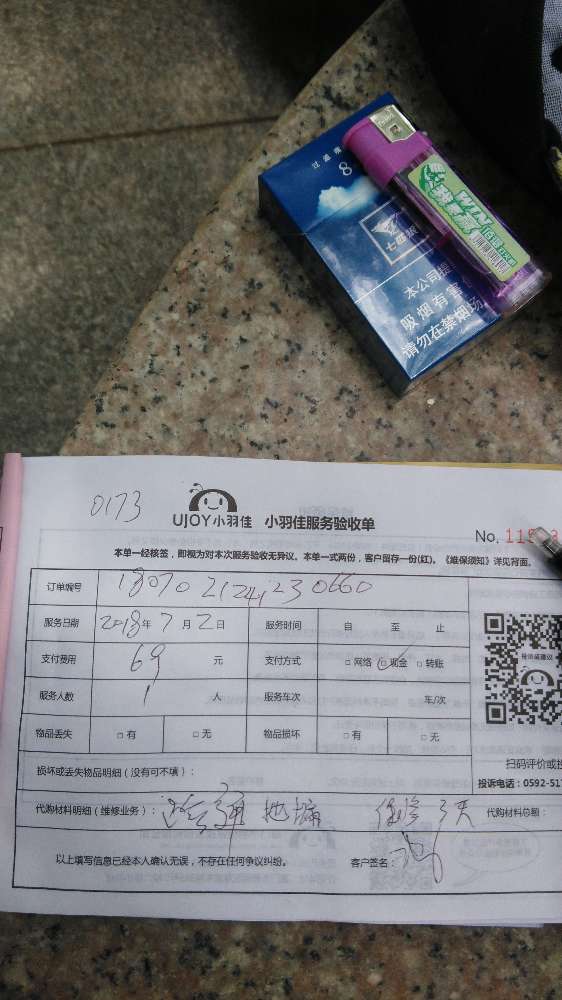 过滤嘴
8
七匹狼
本公司提
吸烟有害
请勿在禁烟场
WIN
0173
UJOY小羽佳 小羽佳服务验收单
No. 11
本单一经核签，即视为对本次服务验收无异议。本单一式两份，客户留存一份(红)。《维保须知》详见背面。
订单编号
服务日期 2018年 7 月 2 日 服务时间 自 至 止
支付费用 69 元 支付方式 □ 网络 □ 现金 □ 转账
服务人数 1 人 服务车次 车/次
物品丢失 □ 有 □ 无 物品损坏 □ 有 □ 无
损坏或丢失物品明细（没有可不填）：
扫码评价或投
投诉电话：0592-517
代购材料明细（维修业务）： 疏通 地漏 保修 3天 代购材料总额：
以上填写信息已经本人确认无误，不存在任何争议纠纷。 客户签名：